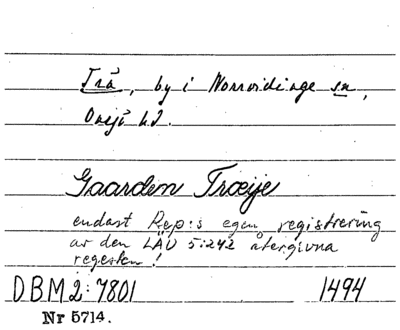 Trä, by i Norrvidinge sn,
Onsjö hd.
Gaarden Træije
endast Rep:s egen registrering
av den LÄU 5:242 återgivna
regesten!
DBM2:7801 1494
Nr 5714.